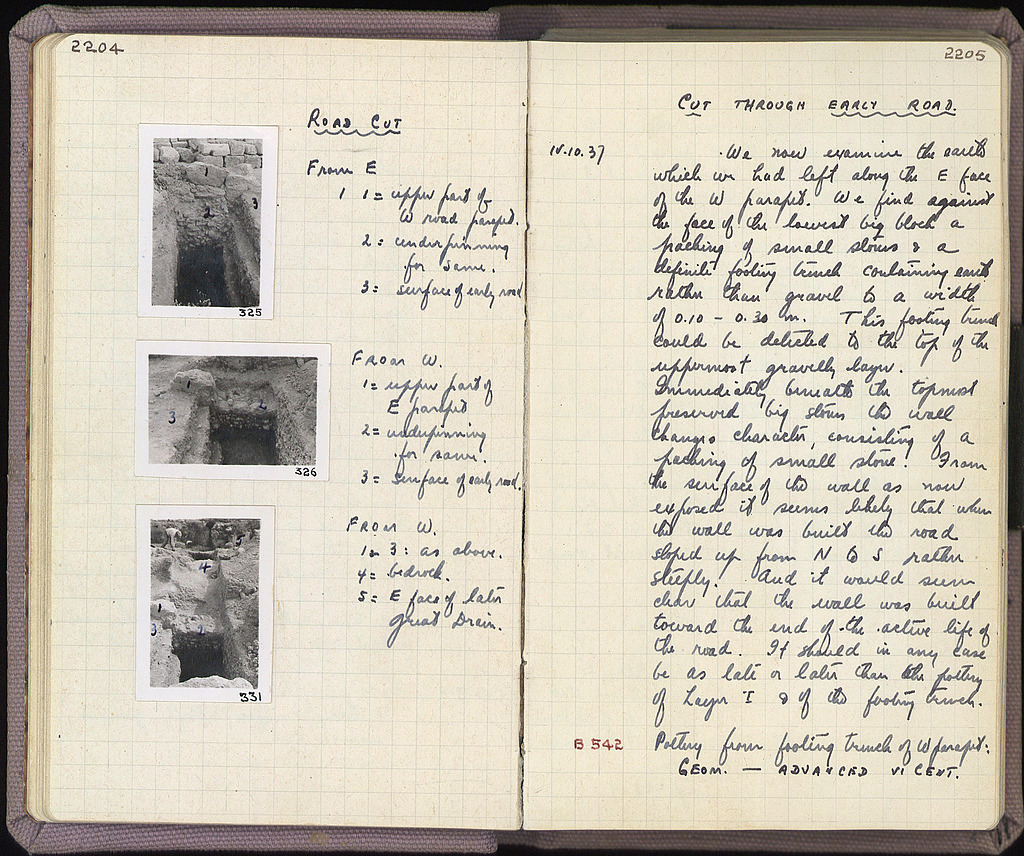 2204
ROAD CUT
From E
1 1 = upper part of
W road parapet.
2 = underpinning
for same.
3 = surface of early road
1
2
3
325
From W.
1 = upper part of
E parapet
2 = underpinning
for same.
3 = surface of early road.
1
2
3
326
From W.
1 - 3 : as above.
4 = bedrock.
5 = E face of later
Great Drain.
5
4
1
3
2
331
2205
CUT THROUGH EARLY ROAD.
IV.10.37
We now examine the earth
which we had left along the E face
of the W parapet. We find against
the face of the lowest big block a
packing of small stones & a
definite footing trench containing earth
rather than gravel to a width
of 0.10 - 0.30 m. This footing trench
could be detected to the top of the
uppermost gravelly layer.
Immediately beneath the topmost
preserved big stones the wall
changes character, consisting of a
packing of small stone. From
the surface of the wall as now
exposed it seems likely that when
the wall was built the road
sloped up from N to S rather
steeply. And it would seem
clear that the wall was built
toward the end of the active life of
the road. It should in any case
be as late or later than the pottery
of Layer I & of the footing trench.
B 542 Pottery from footing trench of W parapet:
GEOM. — ADVANCED VI CENT.